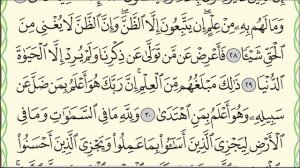 وَمَا لَهُم بِهِۦ مِنْ عِلْمٍ ۖ إِن يَتَّبِعُونَ إِلَّا ٱلظَّنَّ ۖ وَإِنَّ ٱلظَّنَّ لَا يُغْنِى مِنَ
ٱلْحَقِّ شَيْـًٔا ٢٨ فَأَعْرِضْ عَن مَّن تَوَلَّىٰ عَن ذِكْرِنَا وَلَمْ يُرِدْ إِلَّا ٱلْحَيَوٰةَ
ٱلدُّنْيَا ٢٩ ذَٰلِكَ مَبْلَغُهُم مِّنَ ٱلْعِلْمِ ۚ إِنَّ رَبَّكَ هُوَ أَعْلَمُ بِمَن ضَلَّ عَن
سَبِيلِهِۦ وَهُوَ أَعْلَمُ بِمَنِ ٱهْتَدَىٰ ٣٠ وَلِلَّهِ مَا فِى ٱلسَّمَٰوَٰتِ وَمَا فِى
ٱلْأَرْضِ لِيَجْزِىَ ٱلَّذِينَ أَسَٰٓـُٔوا۟ بِمَا عَمِلُوا۟ وَيَجْزِىَ ٱلَّذِينَ أَحْسَنُوا۟